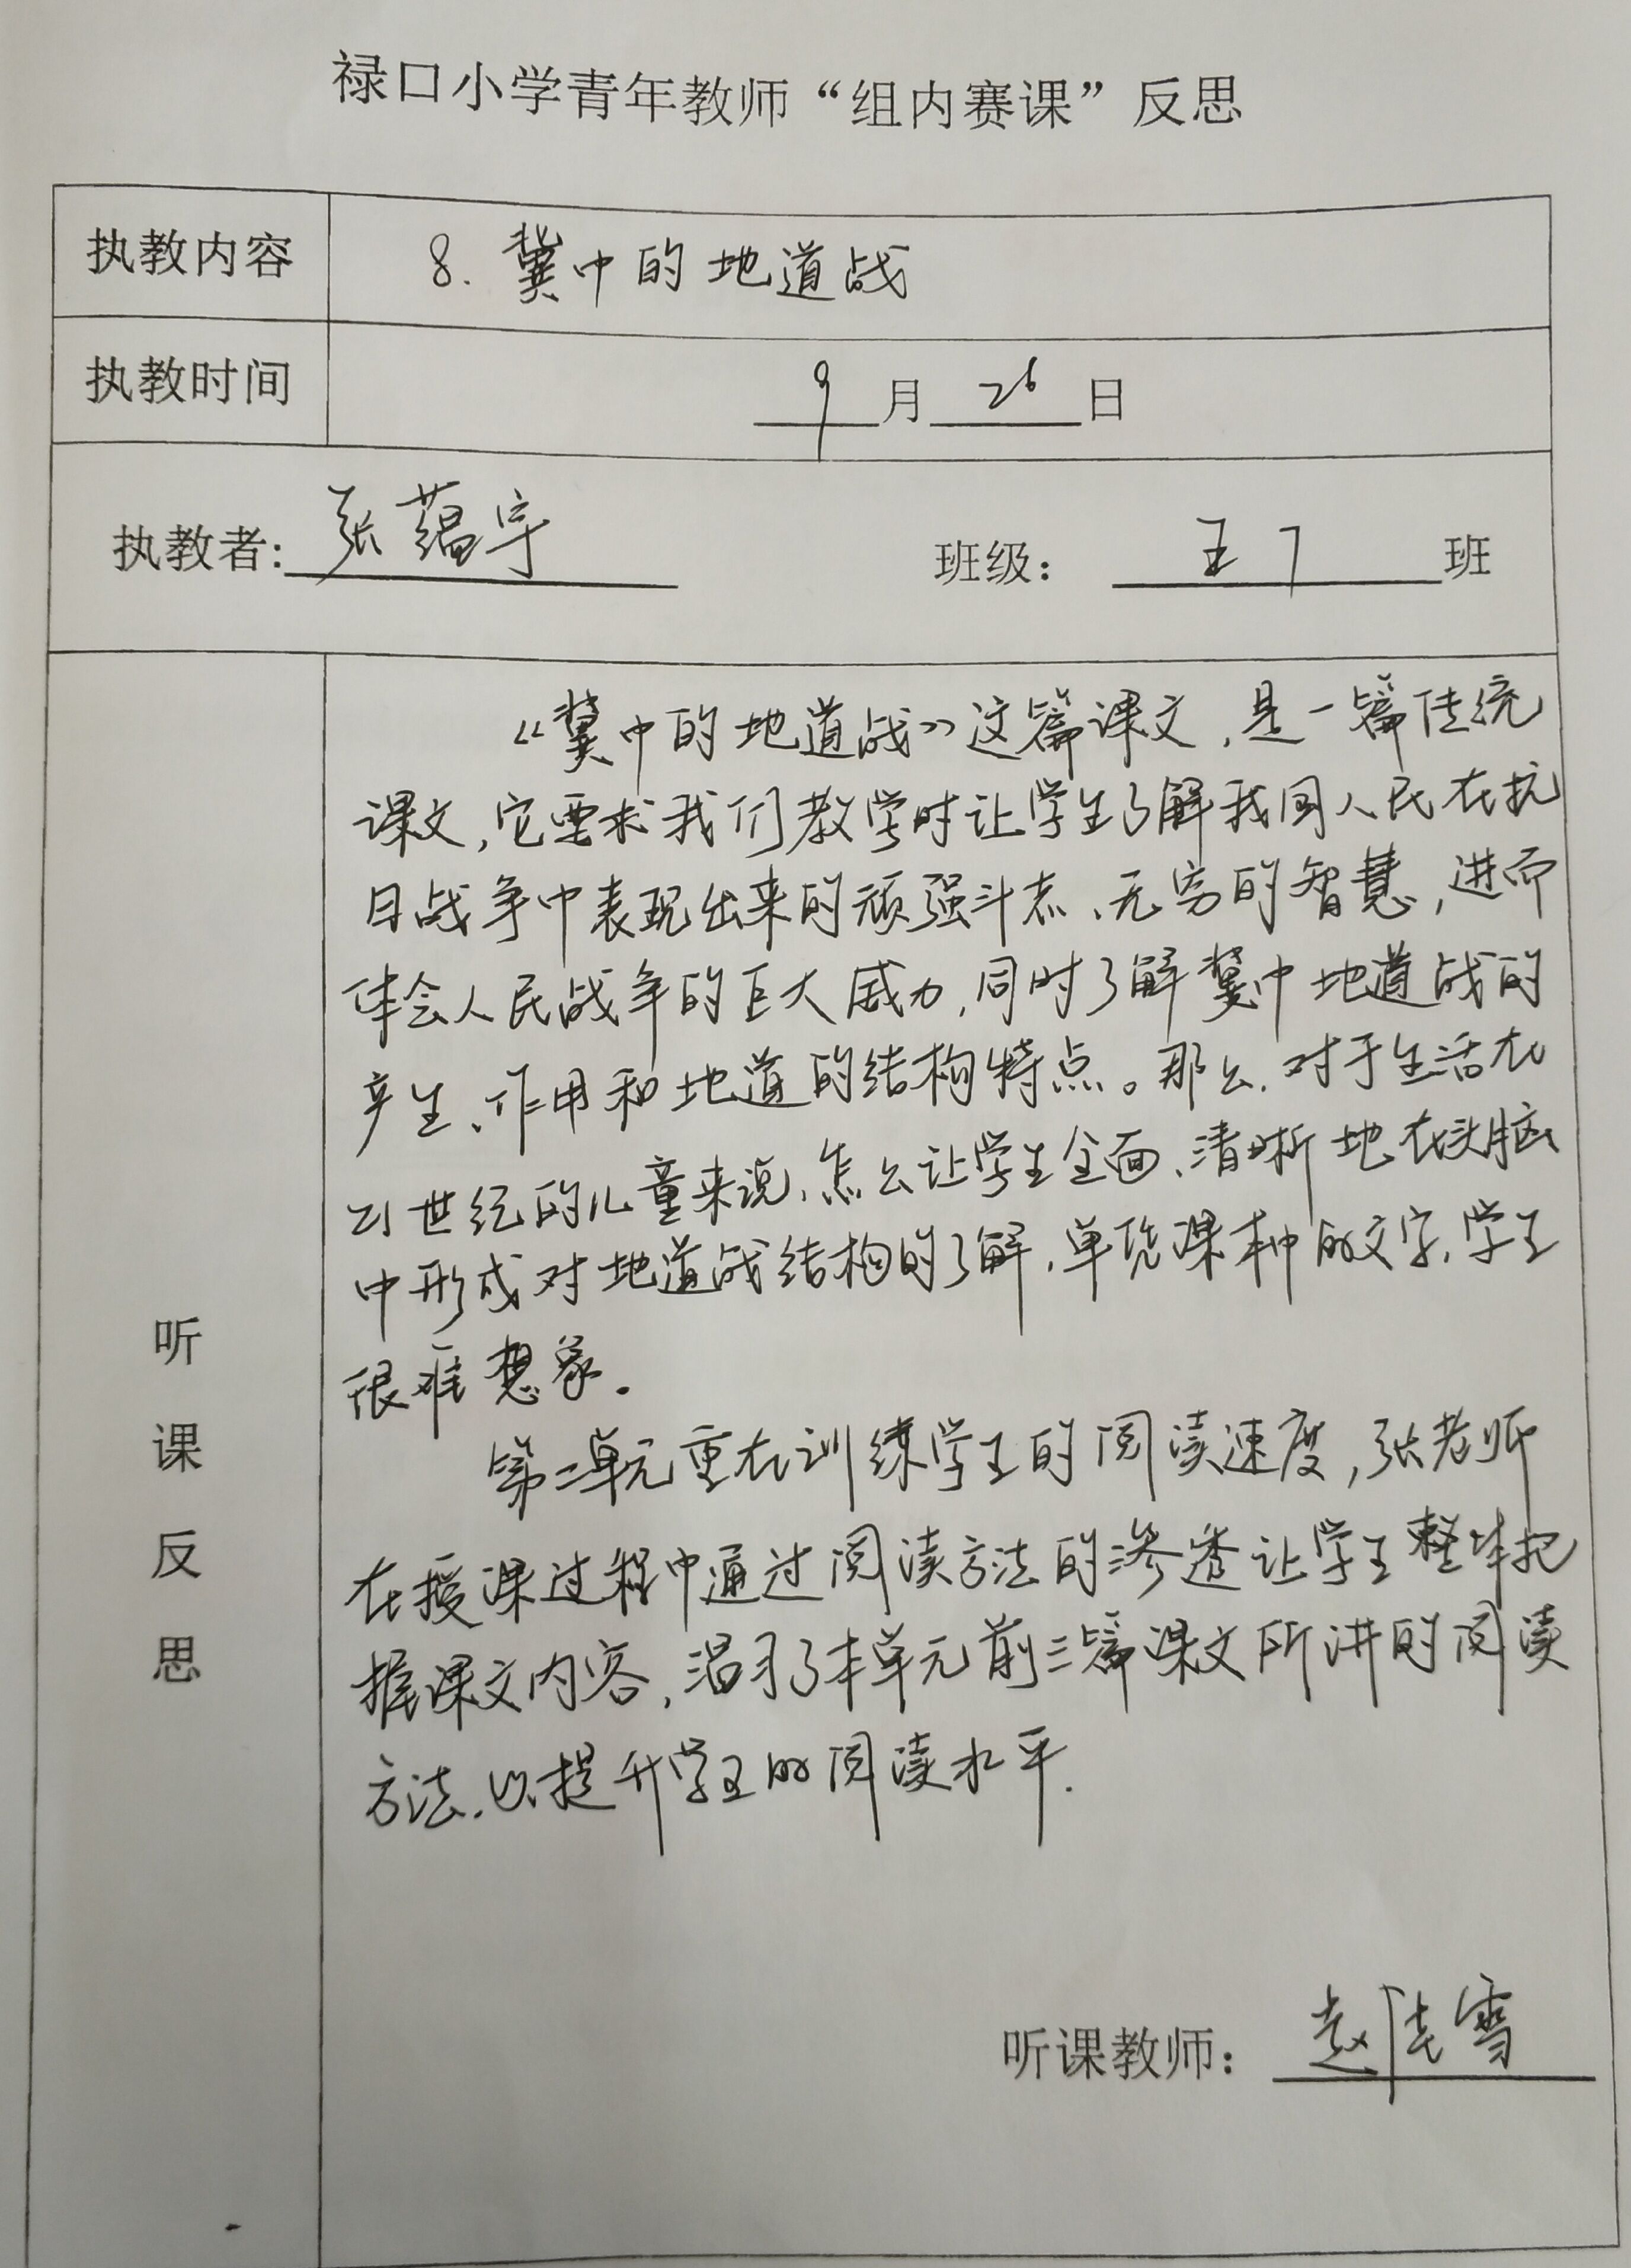 禄口小学青年教师“组内赛课”反思
执教内容
8. 冀中的地道战
执教时间
9月26日
执教者: 张蕴宇
班级: 五7班
《冀中的地道战》这篇课文，是一篇传统
课文，它要求我们教学时让学生了解我国人民在抗
日战争中表现出来的顽强斗志、无穷的智慧，进而
体会人民战争的巨大威力，同时了解冀中地道战的
产生、作用和地道的结构特点。那么，对于生活在
21世纪的儿童来说，怎么让学生全面、清晰地在头脑
中形成对地道战结构的了解，单凭课本中的文字，学生
很难想象。
第二单元重在训练学生的阅读速度，张老师
在授课过程中通过阅读方法的渗透让学生整体把
握课文内容，温习了本单元前三篇课文所讲的阅读
方法，以提升学生的阅读水平.
听课反思
听课教师: 赵佳雪